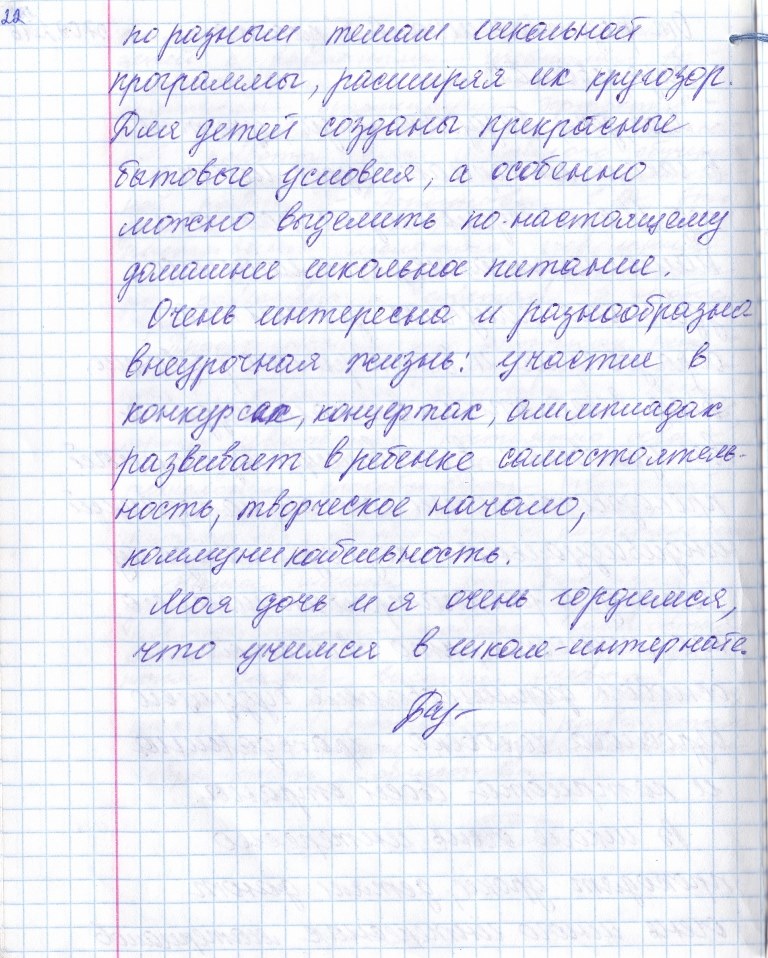 22
по разным темам школьной
программы, расширяя их кругозор.
Для детей созданы прекрасные
бытовые условия, а особенно
можно выделить по-настоящему
домашнее школьное питание.
Очень интересна и разнообразна
внеурочная жизнь: участие в
конкурсах, концертах, олимпиадах
развивает в ребенке самостоятель-
ность, творческое начало,
коммуникабельность.
Моя дочь и я очень гордимся,
что учимся в школе-интернате.